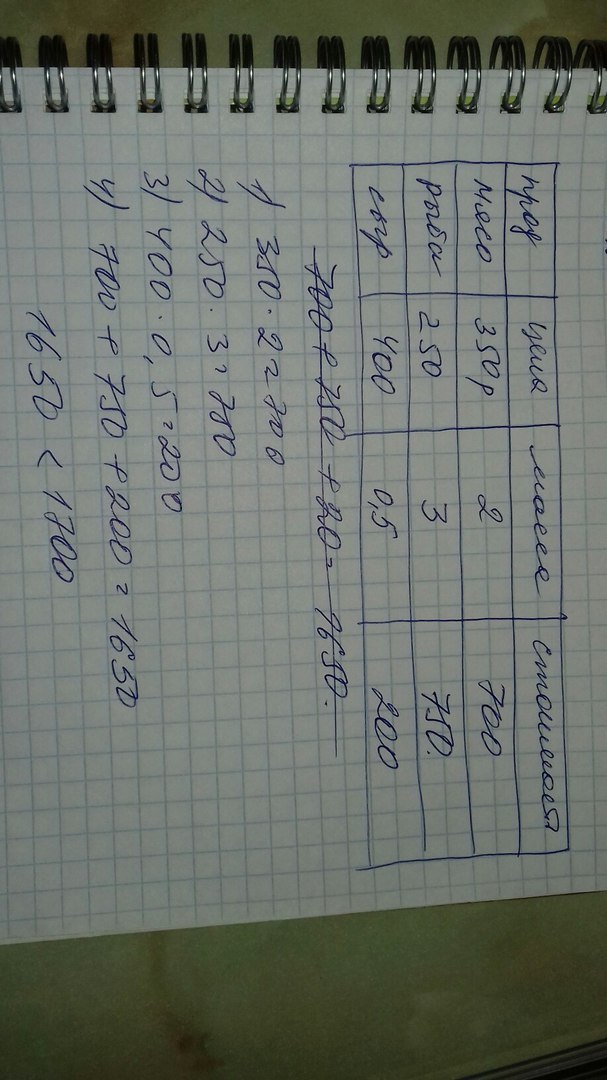 прод цена масса стоимость
мясо 350р 2 700
рыба 250 3 750.
сыр 400 0,5 200
700 + 750 + 20 = 1650.
1) 350 · 2 = 700
2) 250 · 3 = 750
3) 400 · 0,5 = 200
4) 700 + 750 + 200 = 1650
1650 < 1700